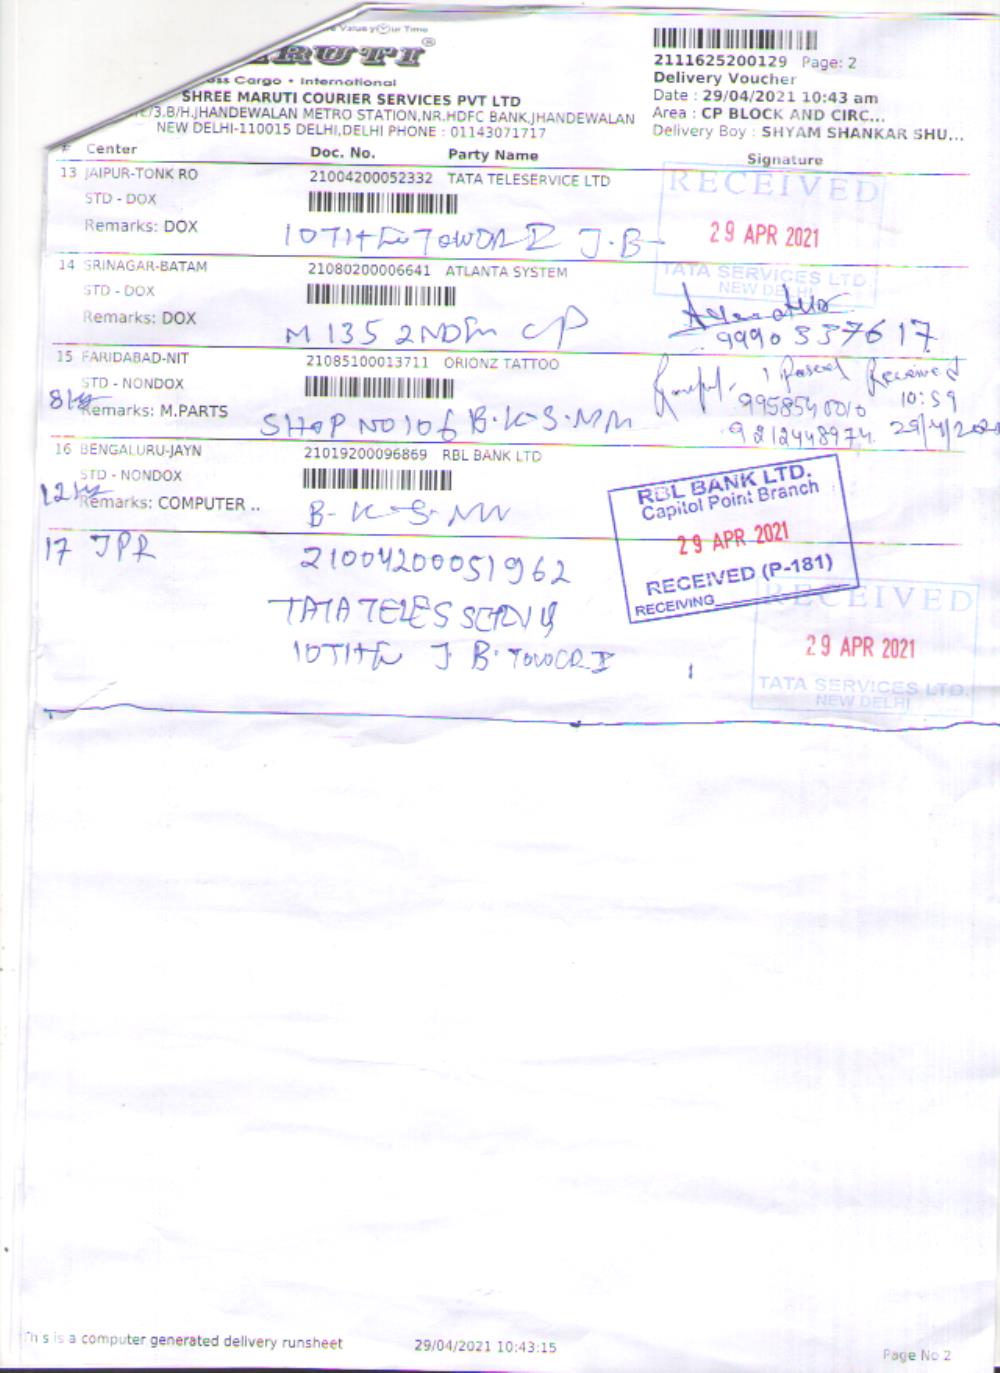 Value your Time
RUTI®
ss Cargo • International
SHREE MARUTI COURIER SERVICES PVT LTD
/3,B/H.JHANDEWALAN METRO STATION,NR.HDFC BANK,JHANDEWALAN
NEW DELHI-110015 DELHI,DELHI PHONE : 01143071717
2111625200129 Page: 2
Delivery Voucher
Date : 29/04/2021 10:43 am
Area : CP BLOCK AND CIRC...
Delivery Boy : SHYAM SHANKAR SHU...
# Center Doc. No. Party Name Signature
13 JAIPUR-TONK RO 21004200052332 TATA TELESERVICE LTD
STD - DOX
Remarks: DOX
J.B
RECEIVED
29 APR 2021
TATA SERVICES LTD.
NEW DELHI
14 SRINAGAR-BATAM 21080200006641 ATLANTA SYSTEM
STD - DOX
Remarks: DOX
M 135 2ND CP
9990337617
15 FARIDABAD-NIT 21085100013711 ORIONZ TATTOO
STD - NONDOX
Remarks: M.PARTS
SHOP NO 106 B.K.S.M
1 Parcel Received
10:59
9212448974 29/4/2021
16 BENGALURU-JAYN 21019200096869 RBL BANK LTD
STD - NONDOX
12kg
Remarks: COMPUTER ..
B-K-S-M
RBL BANK LTD.
Capitol Point Branch
29 APR 2021
RECEIVED (P-181)
RECEIVING
17 JPR 21004200051962
TATA TELESSERVIS
10TH J B TOWER I
RECEIVED
29 APR 2021
TATA SERVICES LTD.
NEW DELHI
This is a computer generated delivery runsheet 29/04/2021 10:43:15 Page No 2